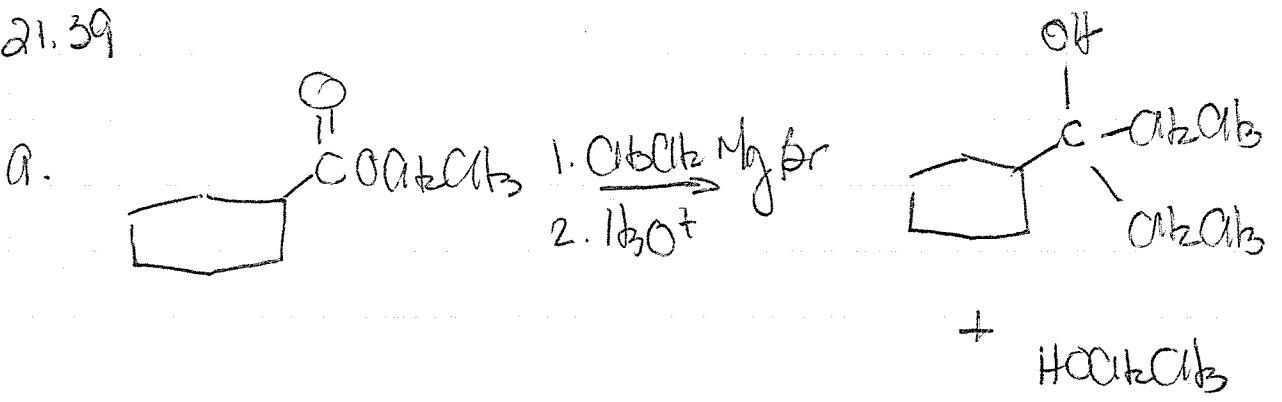 21.39
OH
O
a.
C OCH2CH3
1. CH3CH2MgBr
2. H3O+
C
CH2CH3
CH2CH3
+
HOCH2CH3